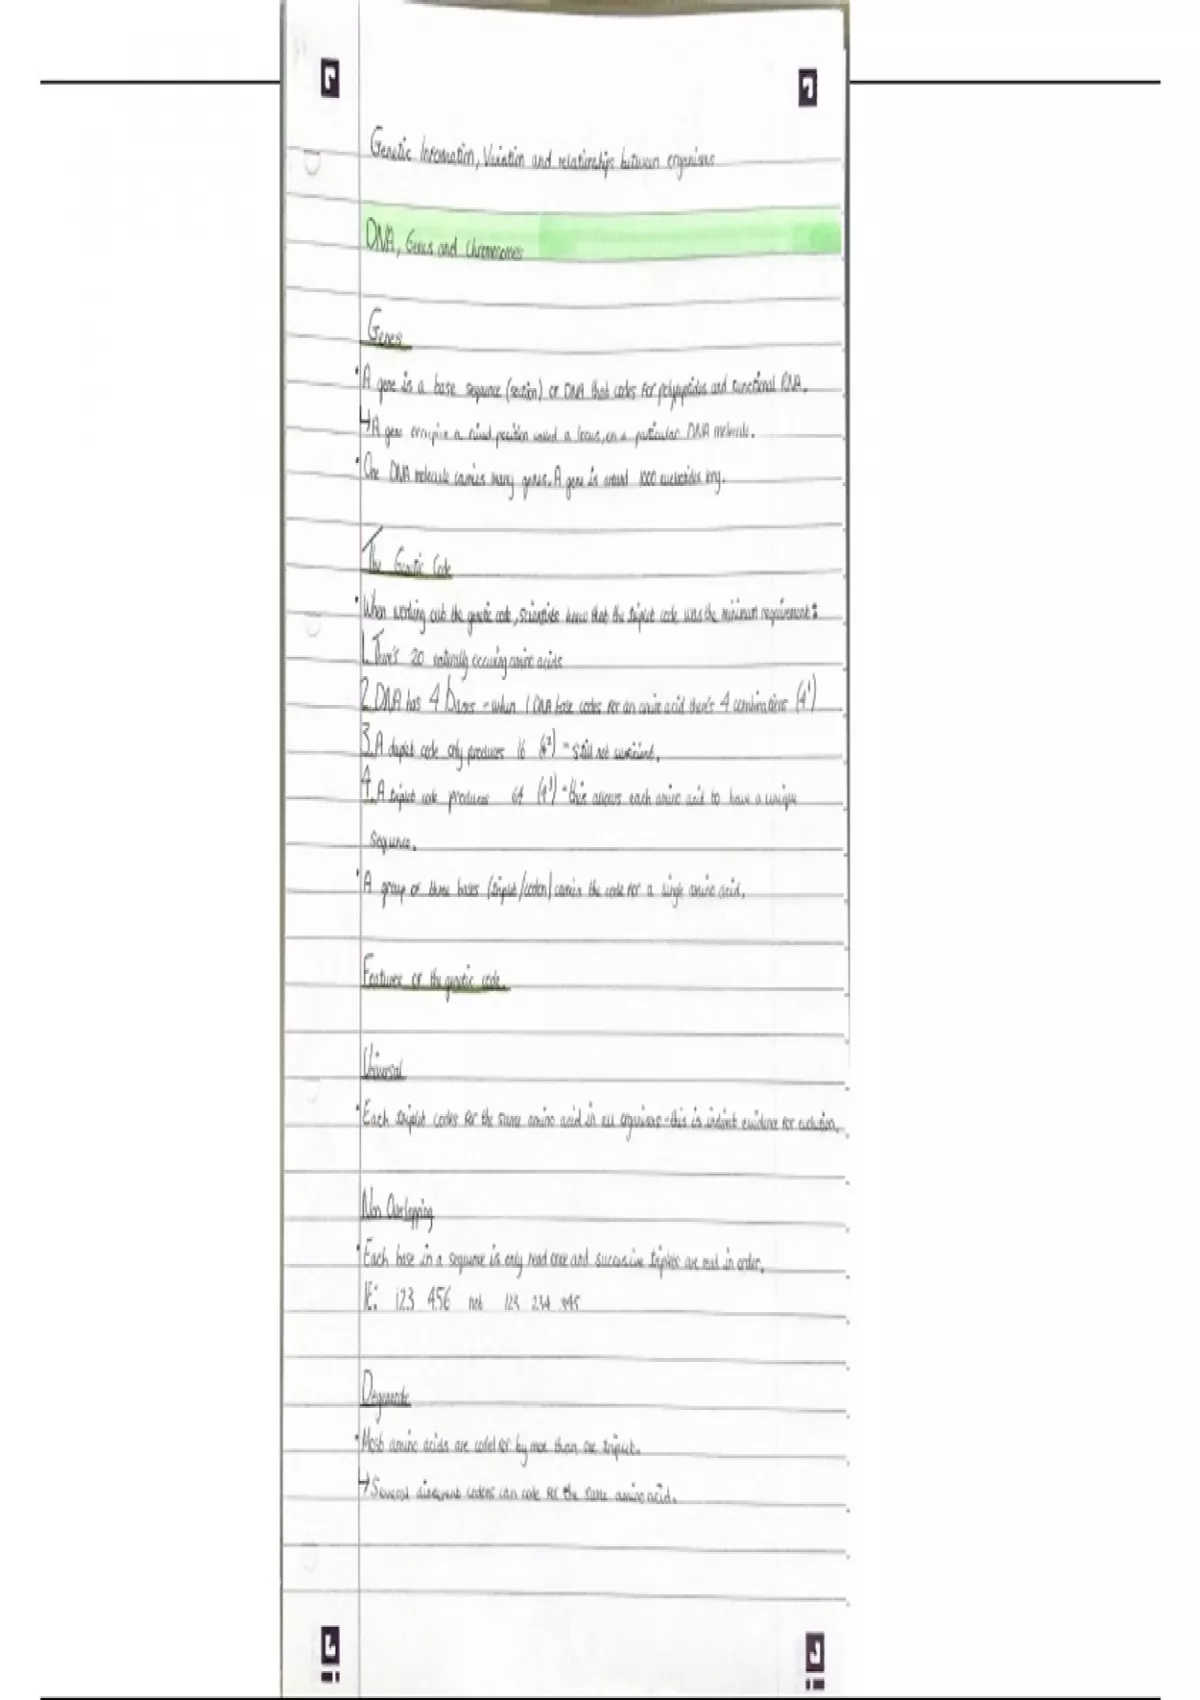 Genetic Information, Variation and relationships between organisms
DNA, Genes and Chromosomes
Genes
• A gene is a base sequence (section) of DNA that codes for polypeptides and functional RNA.
↳ A gene occupies a fixed position called a locus, on a particular DNA molecule.
• One DNA molecule carries many genes. A gene is around 1000 nucleotides long.
The Genetic Code
• When working out the genetic code, scientists knew that the triplet code was the minimum requirement:
1. There's 20 naturally occurring amino acids
2. DNA has 4 bases - when 1 DNA base codes for an amino acid there's 4 combinations (4¹)
3. A duplet code only produces 16 (4²) - still not sufficient.
4. A triplet code produces 64 (4³) - this allows each amino acid to have a unique
sequence.
• A group of three bases (triplet/codon) carries the code for a single amino acid.
Features of the genetic code.
Universal
• Each triplet codes for the same amino acid in all organisms - this is indirect evidence for evolution.
Non Overlapping
• Each base in a sequence is only read once and successive triplets are read in order.
IE: 123 456 not 123 234 345
Degenerate
• Most amino acids are coded for by more than one triplet.
↳ Several different codons can code for the same amino acid.